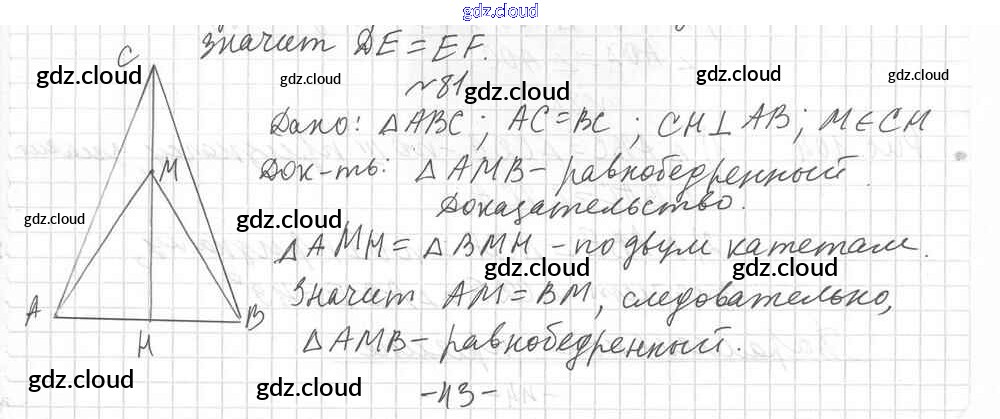 gdz.cloud
значит DE = EF.
№81
Дано: △ABC; AC=BC; CH⊥AB; M∈CH
Док-ть: △AMB – равнобедренный.
Доказательство.
△AMH = △BMH – по двум катетам.
Значит AM = BM, следовательно,
△AMB – равнобедренный.
-43-
C
M
A
B
H
gdz.cloud
gdz.cloud
gdz.cloud
gdz.cloud
gdz.cloud
gdz.cloud
gdz.cloud
gdz.cloud
gdz.cloud
gdz.cloud
gdz.cloud
gdz.cloud